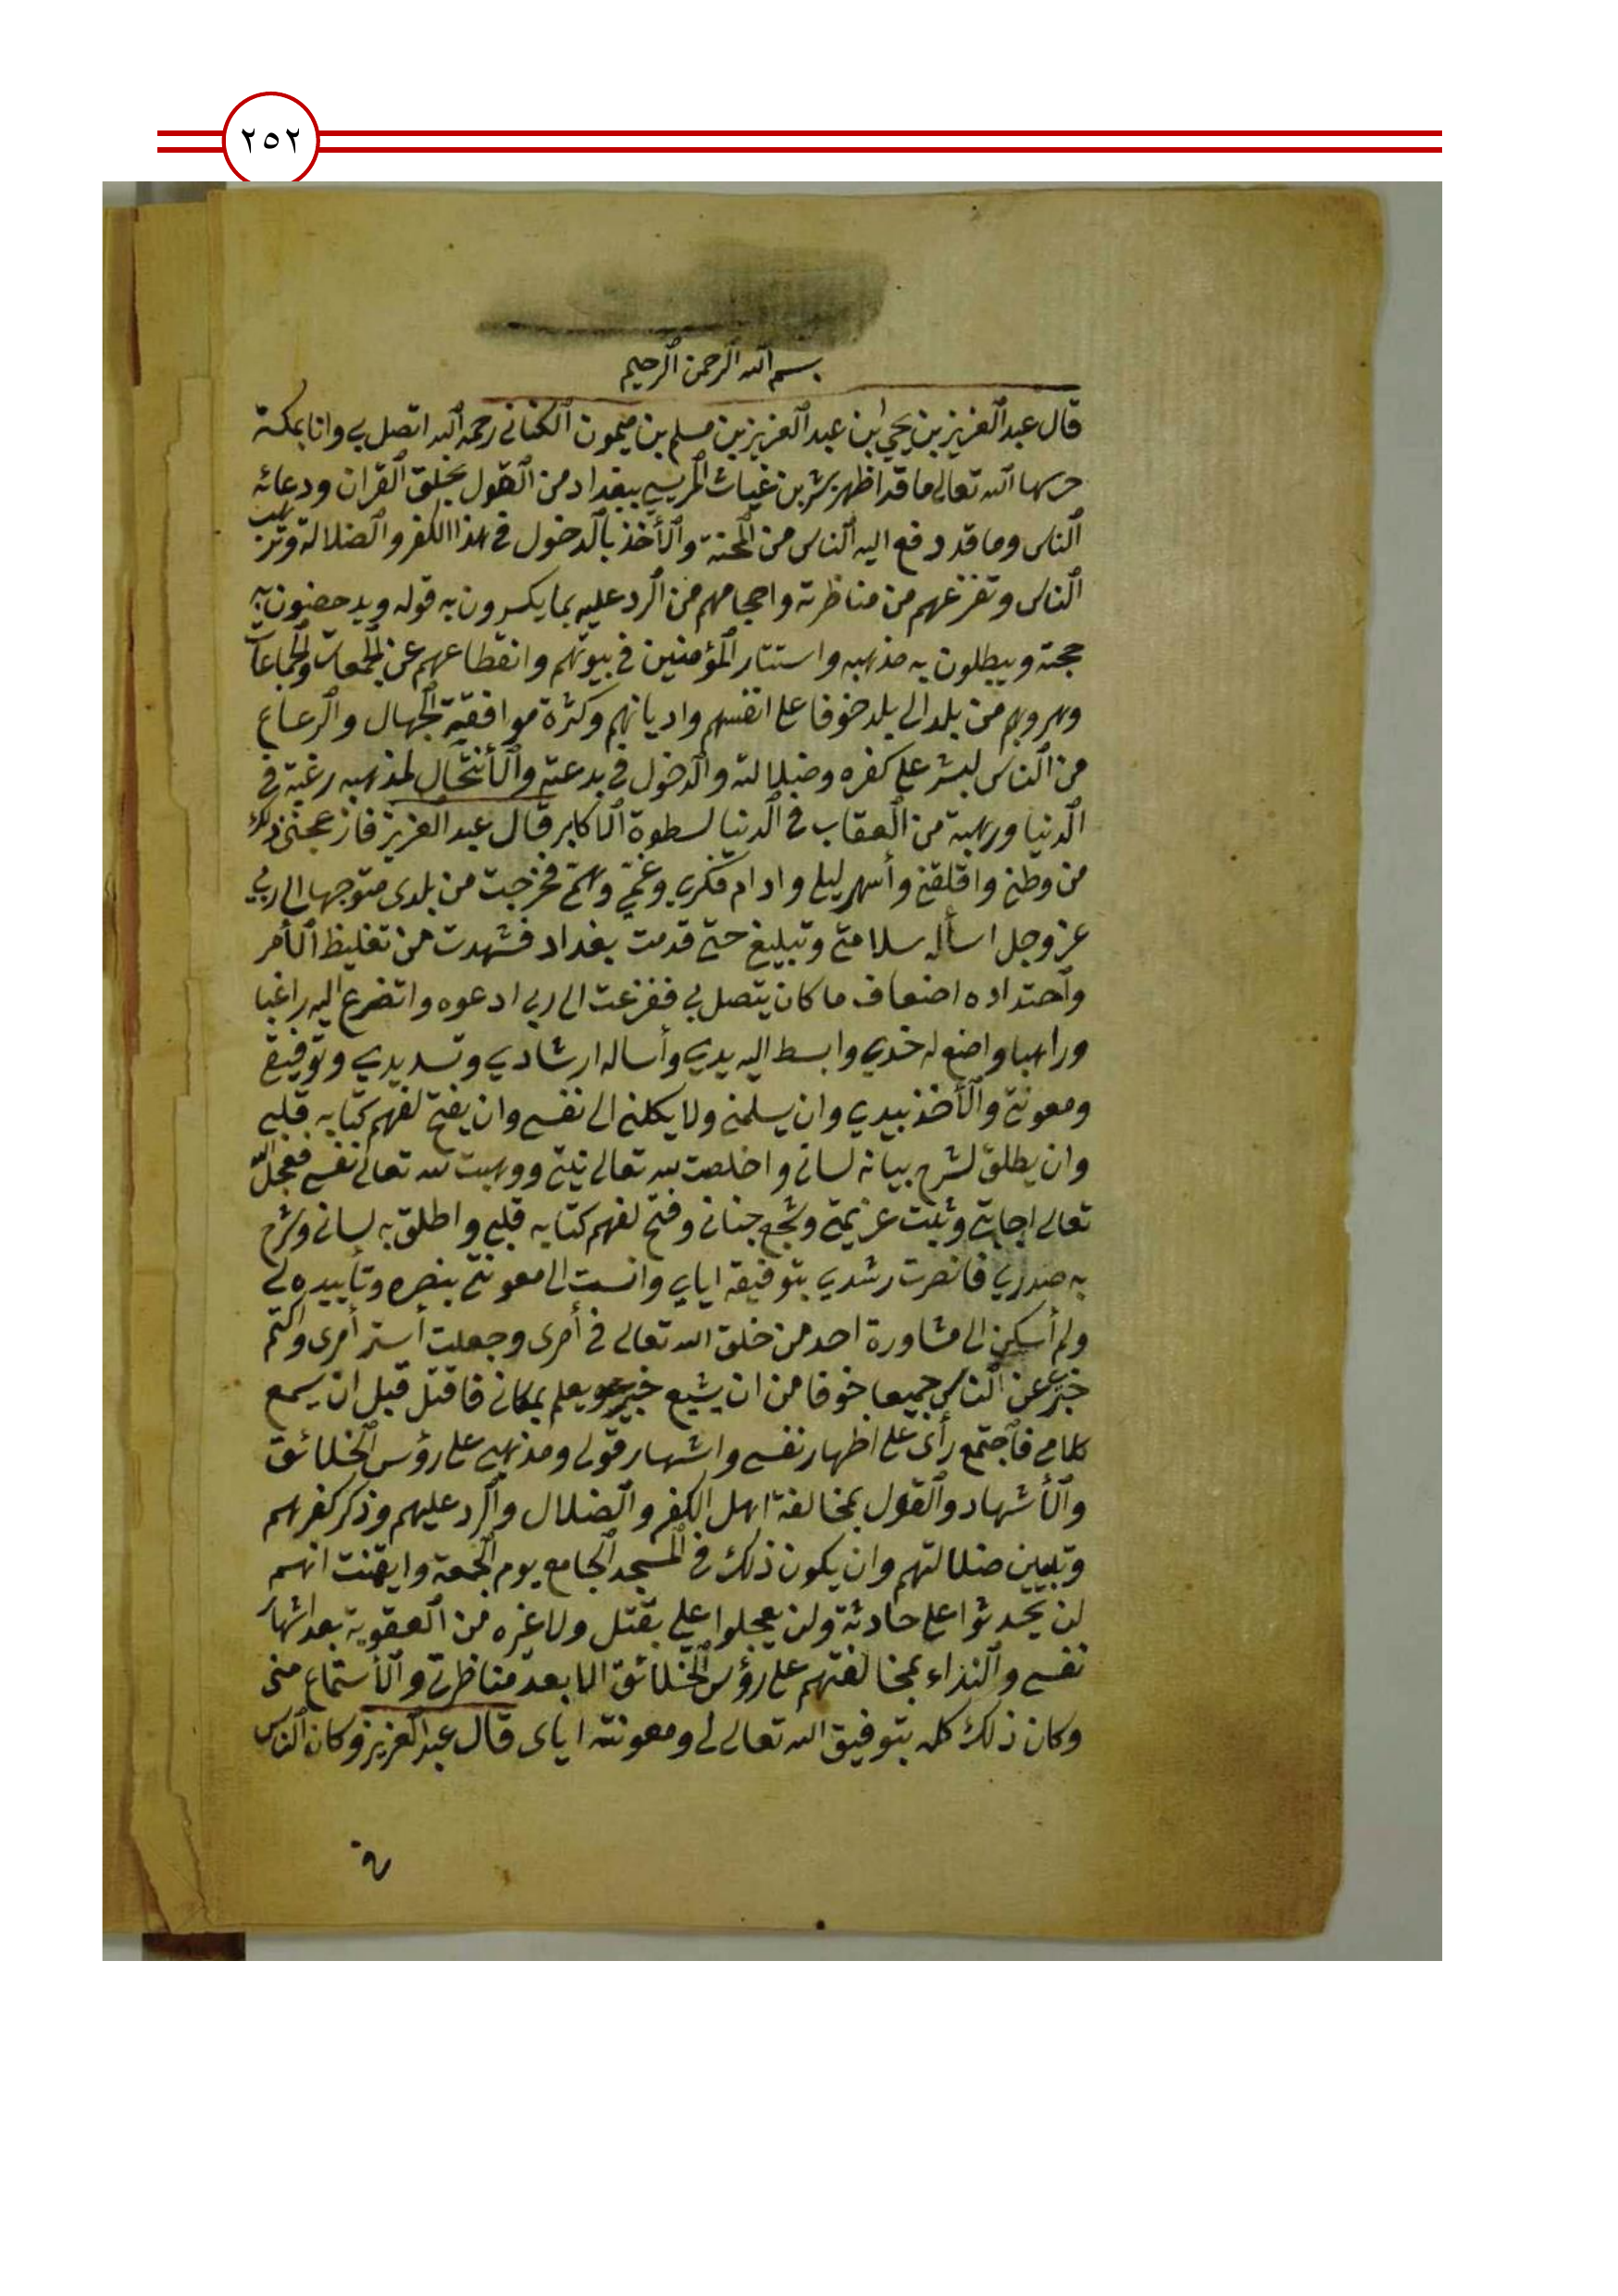 ٢٥٢
بسم الله الرحمن الرحيم
قال عبد العزيز بن يحيى ابن عبد العزيز بن مسلم بن ميمون الكناني رحمه الله اتصل بي وانا بمكة
حرسها الله تعالى ما قد اظهر بشر بن غياث المريسي ببغداد من القول بخلق القران ودعائه
الناس وما قد دفع اليه الناس من المحنة والأخذ بالدخول في هذا الكفر والضلالة وترهيب
الناس وتفزعهم من مناظرته واحجامهم من الرد عليه بما يكسرون به قوله ويدحضون به
حجته ويبطلون به مذهبه واستتار المؤمنين في بيوتهم وانقطاعهم عن الجمعات والجماعات
وهروبهم من بلد الى بلد خوفا على انفسهم واديانهم وكثرة موافقة الجهال والرعاع
من الناس لبشر على كفره وضلالته والدخول في بدعته والأنتحال لمذهبه رغبة في
الدنيا ورهبة من العقاب في الدنيا لسطوة الاكابر قال عبد العزيز فازعجني ذلك
من وطني واقلقني وأسهر ليلي وادام فكري وغمي وهمي فخرجت من بلدى متوجها الى ربي
عز وجل اسأله سلامتي وتبليغي حتى قدمت بغداد فشهدت من تغليظ الأمر
واحتداده اضعاف ما كان يتصل بي ففزعت الى ربي ادعوه واتضرع اليه راغبا
وراهبا واضع له خدي وابسط اليه يدي وأساله ارشادي وتسديدي وتوفيقي
ومعونتي والأخذ بيدي وان يسلمني ولا يكلني الى نفسي وان يفتح لفهم كتابه قلبي
وان يطلق لشرح بيانه لساني واخلصت لله تعالى نيتي ووهبت لله تعالى نفسي فعجل الله
تعالى اجابتي وثبت عزيمتي وشجع جناني وفتح لفهم كتابه قلبي واطلق به لساني وشرح
به صدري فانصرت رشدي بتوفيقه اياي وانست الى معونتي بنصره وتأييده لي
ولم أسكن الى مشاورة احد من خلق الله تعالى في أمرى وجعلت أستر أمرى واكتم
خبري عن الناس جميعا خوفا من ان يشيع خبري ويعلم بمكاني فاقتل قبل ان يسمع
كلامي فاجتمع رأى على اظهار نفسي واشهار قولي ومذهبي على رؤس الخلائق
والأشهاد والقول بمخالفة اهل الكفر والضلال والرد عليهم وذكر كفرهم
وتبيين ضلالتهم وان يكون ذلك في المسجد الجامع يوم الجمعة وايقنت انهم
لن يحدثوا على حادثة ولن يعجلوا علي بقتل ولا غيره من العقوبة بعد اشهار
نفسي والنداء بمخالفتهم على رؤس الخلائق الا بعد مناظرتي والأستماع منى
وكان ذلك كله بتوفيق الله تعالى لي ومعونته اياى قال عبد العزيز وكان الناس